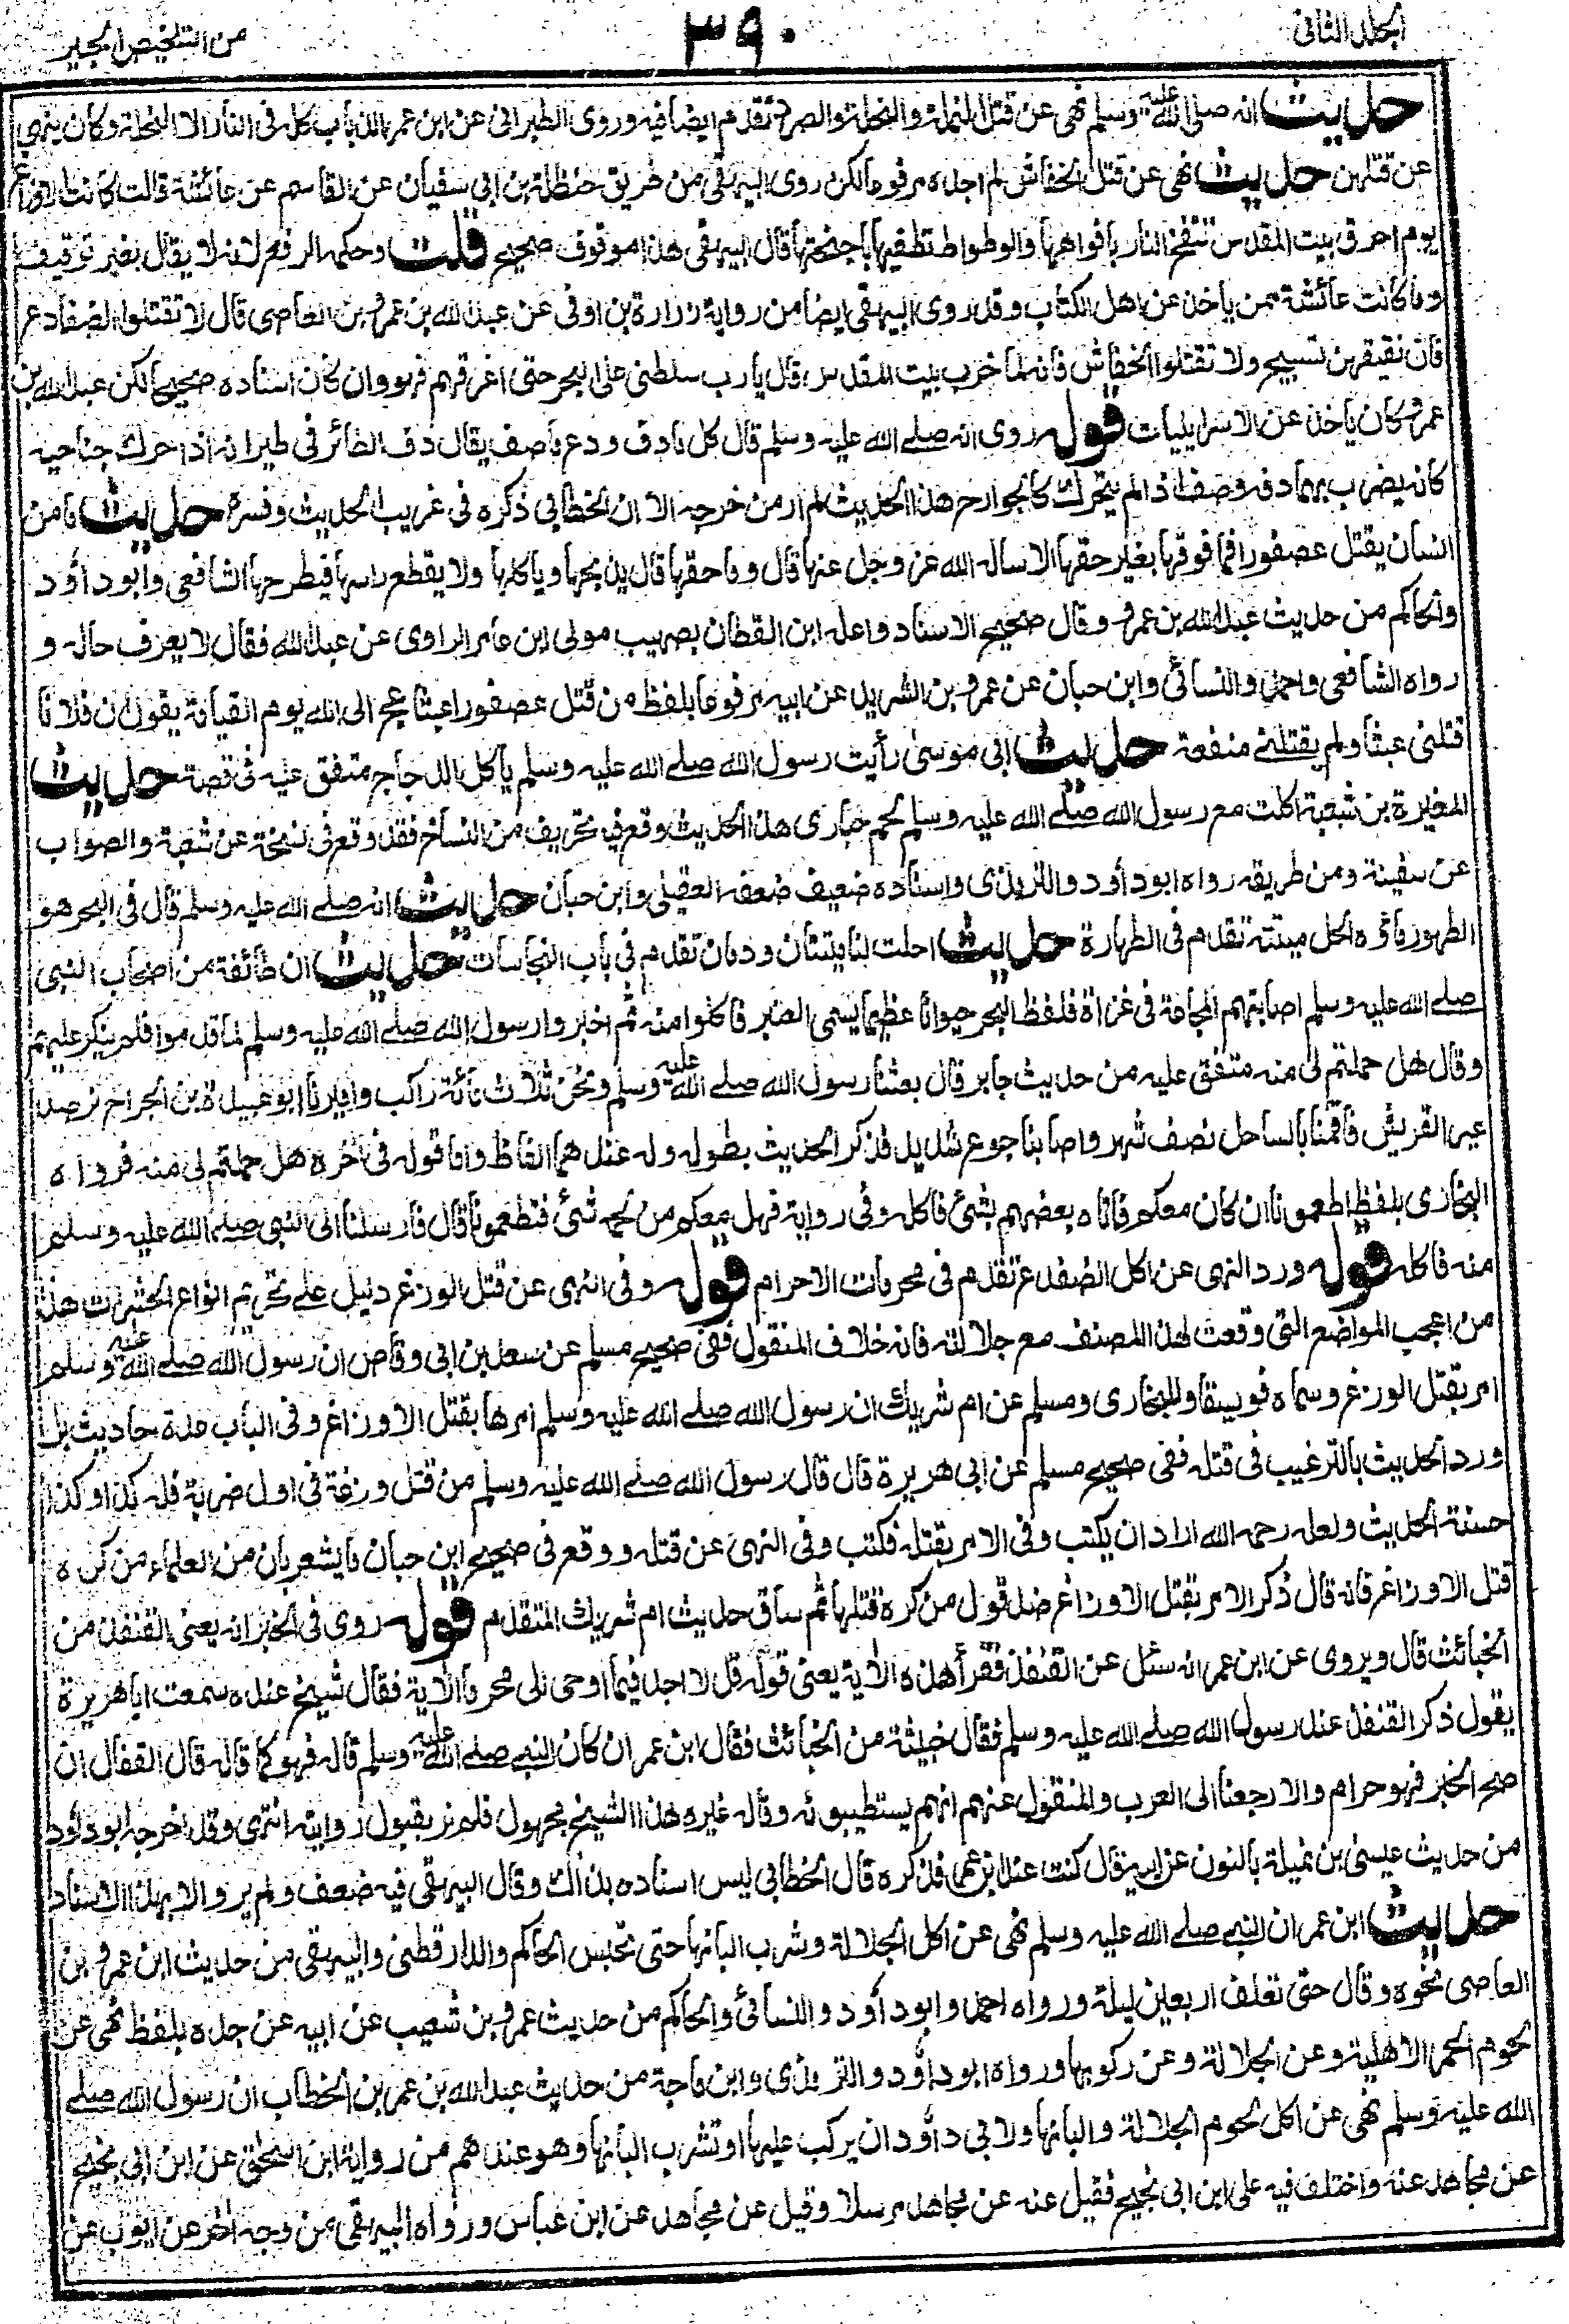 الجلد الثاني
٣٩٠
من التلخيص الحبير
حديث انه صلى الله عليه وسلم نهى عن قتل النملة والنحلة والصرد تقدم ايضا فيه وروى الطبراني عن ابن عمر الذباب كله في النار الا النحلة وكان ينهى
عن قتلهن حديث نهى عن قتل الخفاش لم اجده مرفوعا لكن روى البيهقي من طريق حنظلة بن ابي سفيان عن القاسم عن عائشة قالت كانت الاوزاغ
يوم احرق بيت المقدس تنفخ النار بافواهها والوطواط تطفيها باجنحتها قال البيهقي هذا موقوف صحيح قلت وحكمه الرفع لانه لا يقال بغير توقيف
وما كانت عائشة ممن ياخذ عن اهل الكتاب وقد روى البيهقي ايضا من رواية زرارة بن اوفى عن عبد الله بن عمرو بن العاصي قال لا تقتلوا الضفادع
فان نقيقهن تسبيح ولا تقتلوا الخفاش فانه لما خرب بيت المقدس قال يا رب سلطني على البحر حتى اغرقهم فهو وان كان اسناده صحيحا لكن عبد الله بن
عمرو كان ياخذ عن الاسرايليات قوله روى انه صلى الله عليه وسلم قال كل ما دف ودع ما صف يقال دف الطائر في طيرانه اذا حرك جناحيه
كانه يضرب بهما دفه وصف اذا لم يتحرك كالجوارح هذا الحديث لم ار من خرجه الا ان الخطابي ذكره في غريب الحديث وفسره حديث ما من
انسان يقتل عصفورا فما فوقها بغير حقها الا ساله الله عز وجل عنها قال وما حقها قال يذبحها وياكلها ولا يقطع راسها فيطرحها الشافعي وابو داؤد
والحاكم من حديث عبد الله بن عمرو وقال صحيح الاسناد واعله ابن القطان بصهيب مولى ابن عامر الراوي عن عبد الله فقال لا يعرف حاله و
رواه الشافعي واحمد والنسائي وابن حبان عن عمرو بن الشريد عن ابيه مرفوعا بلفظ من قتل عصفورا عبثا عج الى الله يوم القيامة يقول ان فلانا
قتلني عبثا ولم يقتلني منفعة حديث ابي موسى رأيت رسول الله صلى الله عليه وسلم ياكل الدجاج متفق عليه في قصة حديث
المغيرة بن شعبة اكلت مع رسول الله صلى الله عليه وسلم لحم حبارى هذا الحديث وقع فيه تحريف من النساخ فقد وقع في نسخة عن شعبة والصواب
عن سفينة ومن طريقه رواه ابو داود والترمذي واسناده ضعيف ضعفه العقيلي وابن حبان حديث انه صلى الله عليه وسلم قال في البحر هو
الطهور ماؤه الحل ميتته تقدم في الطهارة حديث احلت لنا ميتتان ودمان تقدم في باب النجاسات حديث ان طائفة من اصحاب النبي
صلى الله عليه وسلم اصابتهم المجاعة في غزاة فلفظ البحر حيوانا عظيما يسمى العنبر فاكلوا منه ثم اخبروا رسول الله صلى الله عليه وسلم لما قدموا فلم ينكر عليهم
وقال هل حملتم لي منه متفق عليه من حديث جابر قال بعثنا رسول الله صلى الله عليه وسلم ونحن ثلاث مائة راكب واميرنا ابو عبيدة بن الجراح نرصد
عير القريش فاقمنا بالساحل نصف شهر واصابنا جوع شديد فذكر الحديث بطوله وله عندهما الفاظ واما قوله في اخره هل حملتم لي منه فرواه
البخاري بلفظ اطعمونا ان كان معكم فاتاه بعضهم بشئ فاكله وفي رواية فهل معكم من لحمه شئ فتطعمونا قال فارسلنا الى النبي صلى الله عليه وسلم
منه فاكله قوله ورد النهي عن اكل الضفدع تقدم في محرمات الاحرام قوله وفي النهي عن قتل الوزغ دليل على تحريم انواع الحشرات هذا
من اعجب المواضع التي وقعت لهذا المصنف مع جلالته فانه خلاف المنقول ففي صحيح مسلم عن سعد بن ابي وقاص ان رسول الله صلى الله عليه وسلم
امر بقتل الوزغ وسماه فويسقا وللبخاري ومسلم عن ام شريك ان رسول الله صلى الله عليه وسلم امرها بقتل الاوزاغ وفي الباب عدة احاديث بل
ورد الحديث بالترغيب في قتله ففي صحيح مسلم عن ابي هريرة قال قال رسول الله صلى الله عليه وسلم من قتل وزغة في اول ضربة فله كذا وكذا
حسنة الحديث ولعله رحمه الله اراد ان يكتب وفي الامر بقتله فكتب وفي النهي عن قتله ووقع في صحيح ابن حبان ما يشعر بان من العلماء من كره
قتل الاوزاغ فانه قال ذكر الامر بقتل الاوزاغ ضد قول من كره قتلها ثم ساق حديث ام شريك المتقدم قوله روى في الخبر انه يعني القنفذ من
الخبائث قال ويروى عن ابن عمر انه سئل عن القنفذ فقرأ هذه الاية يعني قوله قل لا اجد فيما اوحي الى محرما الاية فقال شيخ عنده سمعت ابا هريرة
يقول ذكر القنفذ عند رسول الله صلى الله عليه وسلم فقال خبيثة من الخبائث فقال ابن عمر ان كان النبي صلى الله عليه وسلم قاله فهو كما قاله قال القفال ان
صح الخبر فهو حرام والا رجعنا الى العرب والمنقول عنهم انهم يستطيبونه وقال غيره هذا الشيخ مجهول فلم نر بقبول روايته انتهى وقد اخرجه ابو داؤد
من حديث عيسى بن نميلة بالنون عن ابيه قال كنت عند ابن عمر فذكره قال الخطابي ليس اسناده بذاك وقال البيهقي فيه ضعف ولم يرو الا بهذا الاسناد
حديث ابن عمر ان النبي صلى الله عليه وسلم نهى عن اكل الجلالة وشرب البانها حتى تحبس الحاكم والدارقطني والبيهقي من حديث ابن عمرو بن
العاصي نحوه وقال حتى تعلف اربعين ليلة ورواه احمد وابو داؤد والنسائي والحاكم من حديث عمرو بن شعيب عن ابيه عن جده بلفظ نهى عن
لحوم الحمر الاهلية وعن الجلالة وعن ركوبها ورواه ابو داؤد والترمذي وابن ماجة من حديث عبد الله بن عمر بن الخطاب ان رسول الله صلى
الله عليه وسلم نهى عن اكل لحوم الجلالة والبانها ولابي داؤد ان يركب عليها او تشرب البانها وهو عندهم من رواية ابن اسحق عن ابن ابي نجيح
عن مجاهد عنه واختلف فيه على ابن ابي نجيح فقيل عنه عن مجاهد مرسلا وقيل عن مجاهد عن ابن عباس ورواه البيهقي من وجه اخر عن ايوب عن